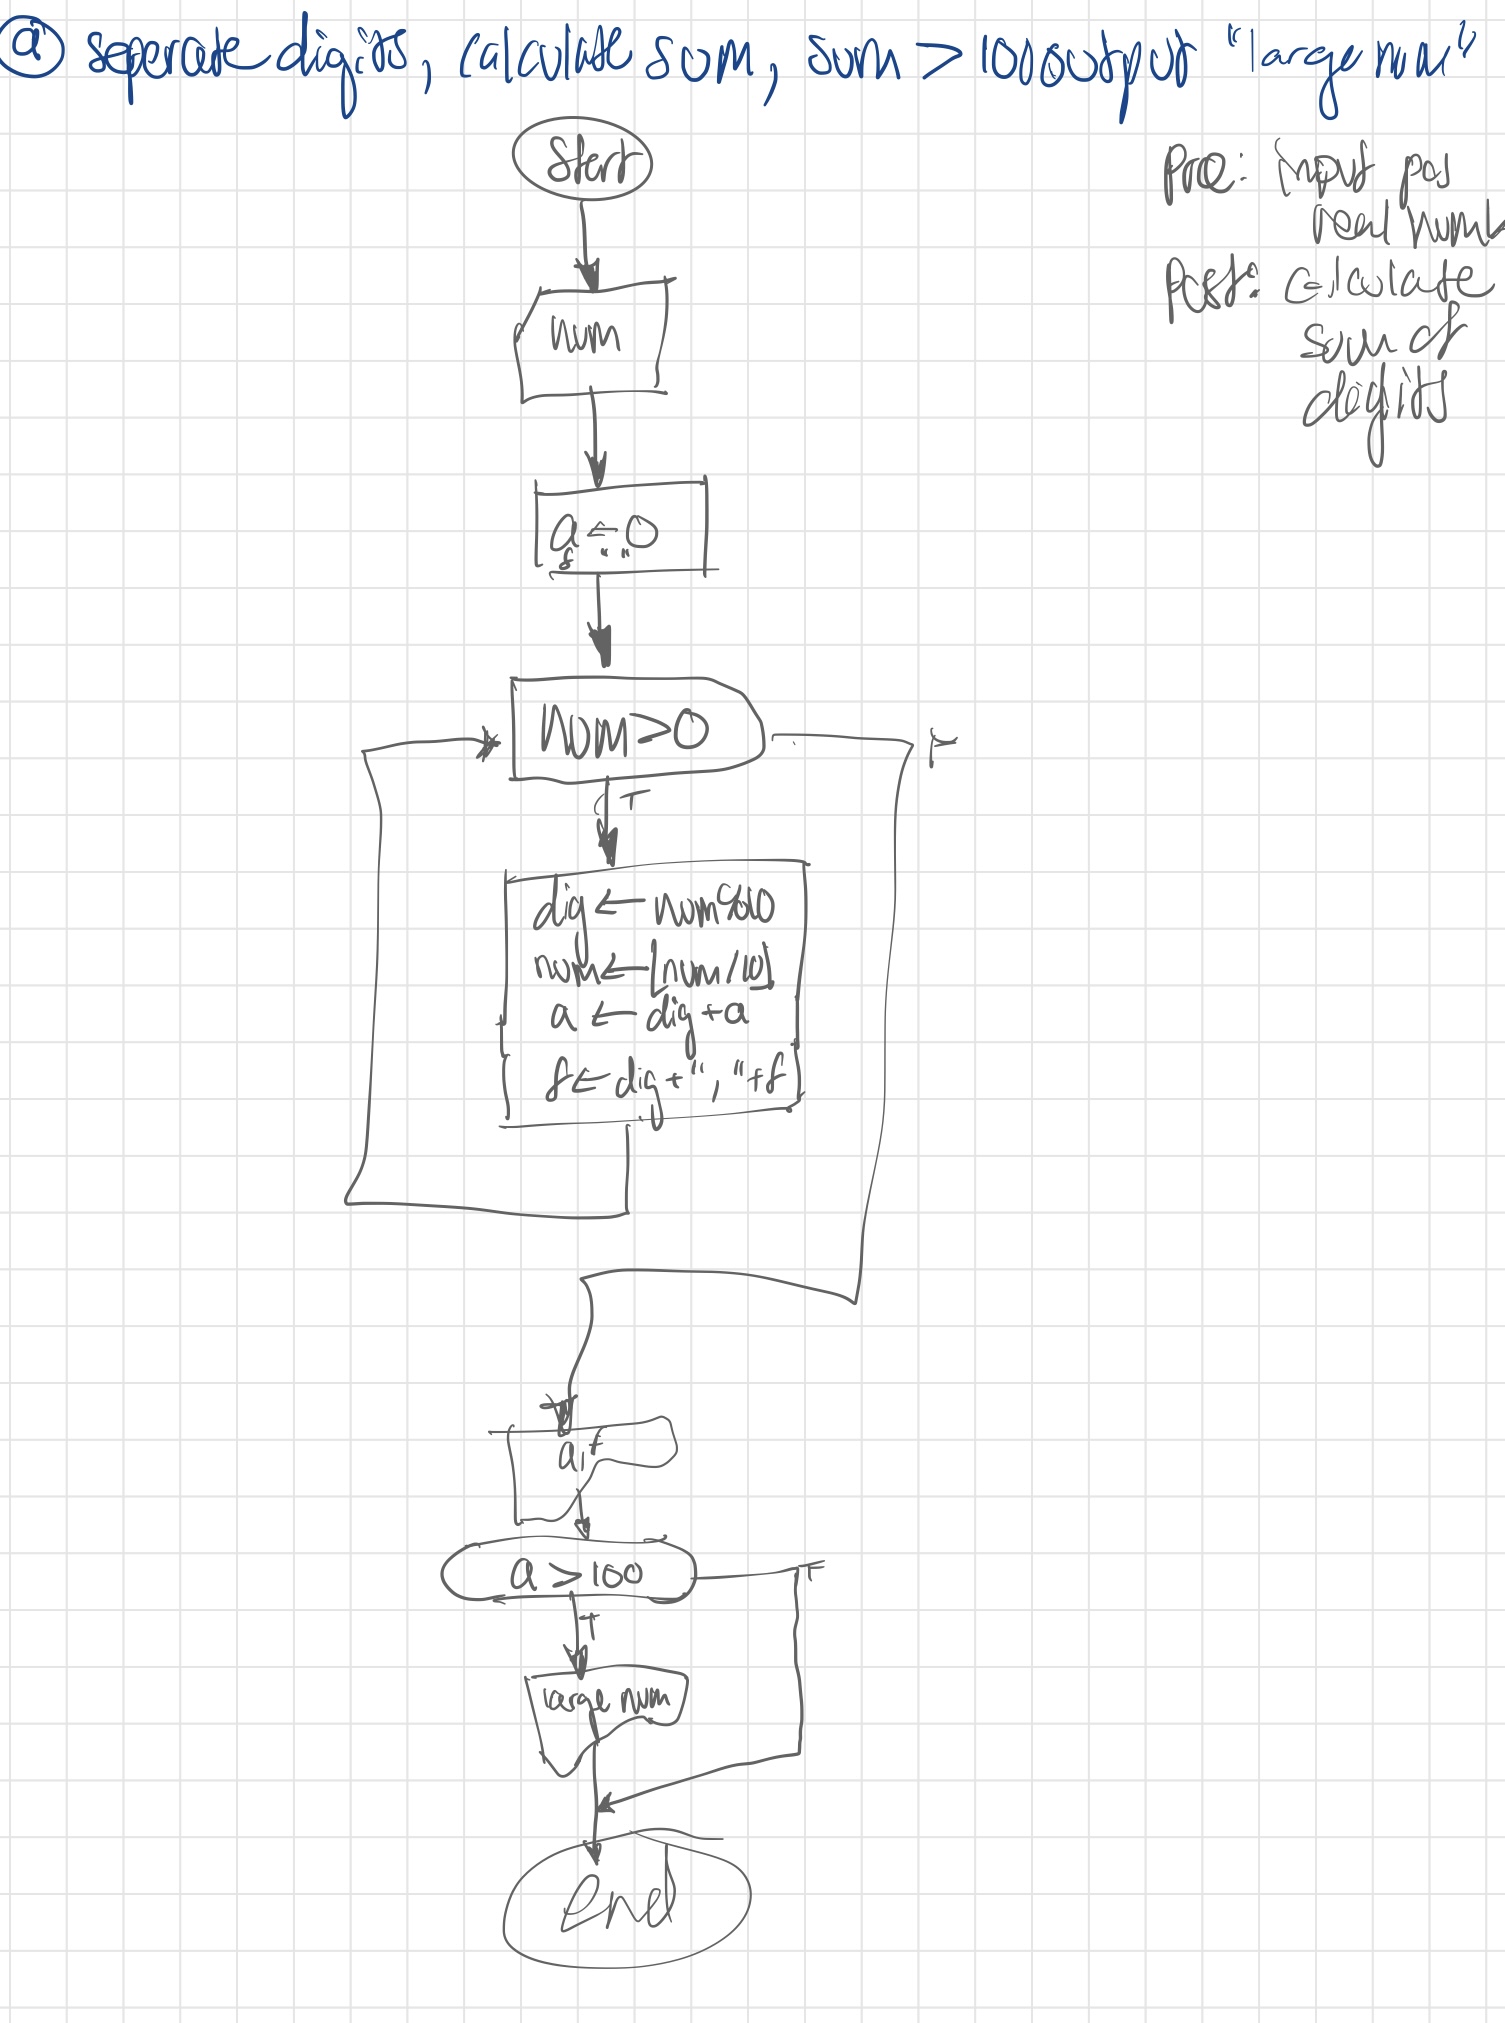 a seperate digits, calculate sum, sum > 100 output "large num"
Start
Pre: input pos
real numb
Post: calculate
sum of
digits
num
a ← 0
f " "
Num>0
F
T
dig ← num%10
num ← [num/10]
a ← dig + a
f ← dig + ", " + f
a, f
a > 100
F
T
large num
end